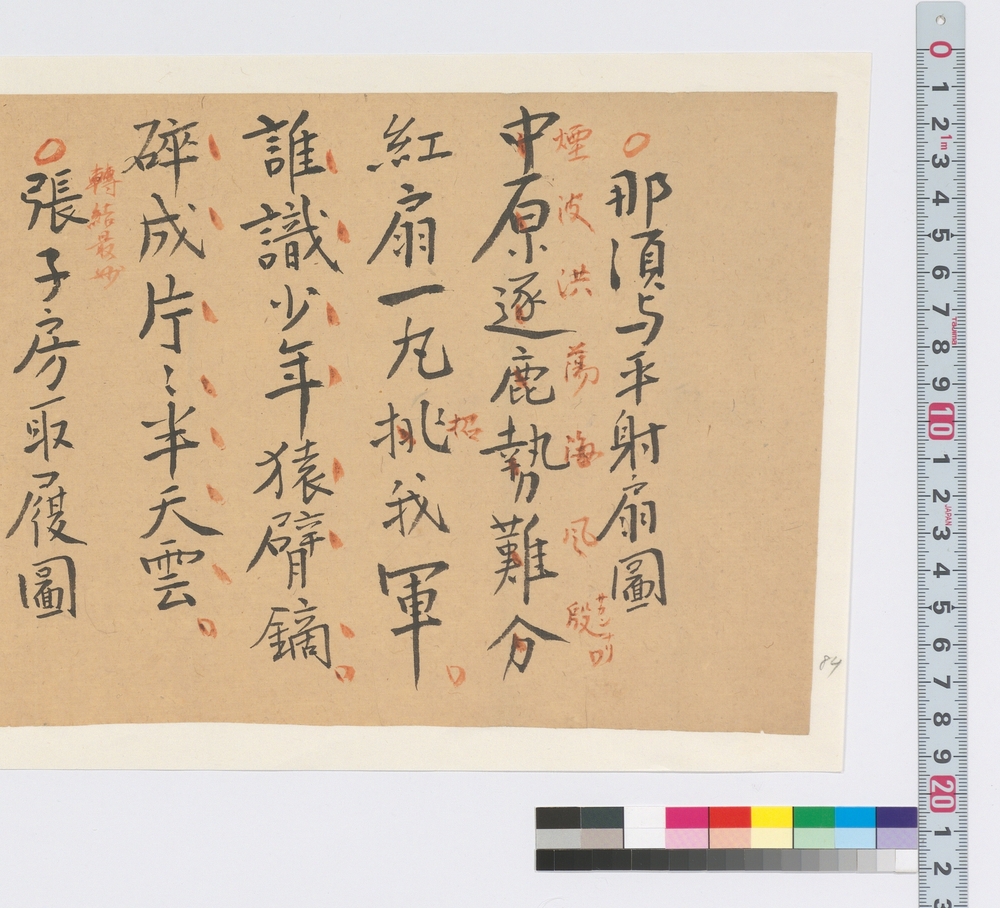 那須与平射扇圖
煙波洪蕩海風殷
中原逐鹿勢難分
招
紅扇一丸挑我軍
誰識少年猿臂鏑
碎成片〻半天雲
轉結最妙
張子房取履圖
84
0 1 2 3 4 5 6 7 8 9 10 1 2 3 4 5 6 7 8 9 20 1 2 3
1m
Tajima
JAPAN